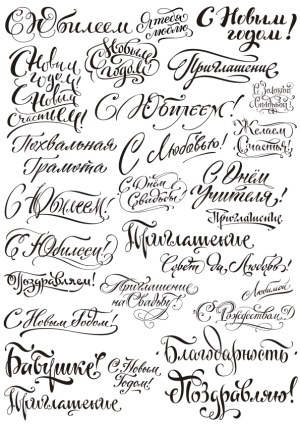 С Юбилеем
Я тебя
люблю
С Новым
годом!
С Новым
годом
С Новым
Счастьем!
С Новым
годом
Приглашение
С Юбилеем!
Желаем
Счастья!
Похвальная
Грамота
С Любовью!
С Днём
Свадьбы
С Днём
Учителя!
С Юбилеем!
Приглашение
Приглашение
С Юбилеем!
Совет да Любовь!
Поздравляем!
Приглашение
на Свадьбу!
Любимой
С Рождеством
С Новым Годом!
Бабушке
С Новым
Годом!
Благодарность
Приглашение
Поздравляю!